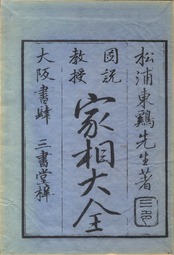 松浦東鶏先生著
図説
教授
家相大全
大阪書肆 三書堂梓